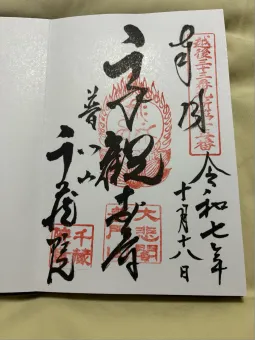 奉拝
越後三十三
番
令和七年
十月十八日
千手観世音
大悲閣
普門山
千蔵院
千蔵院